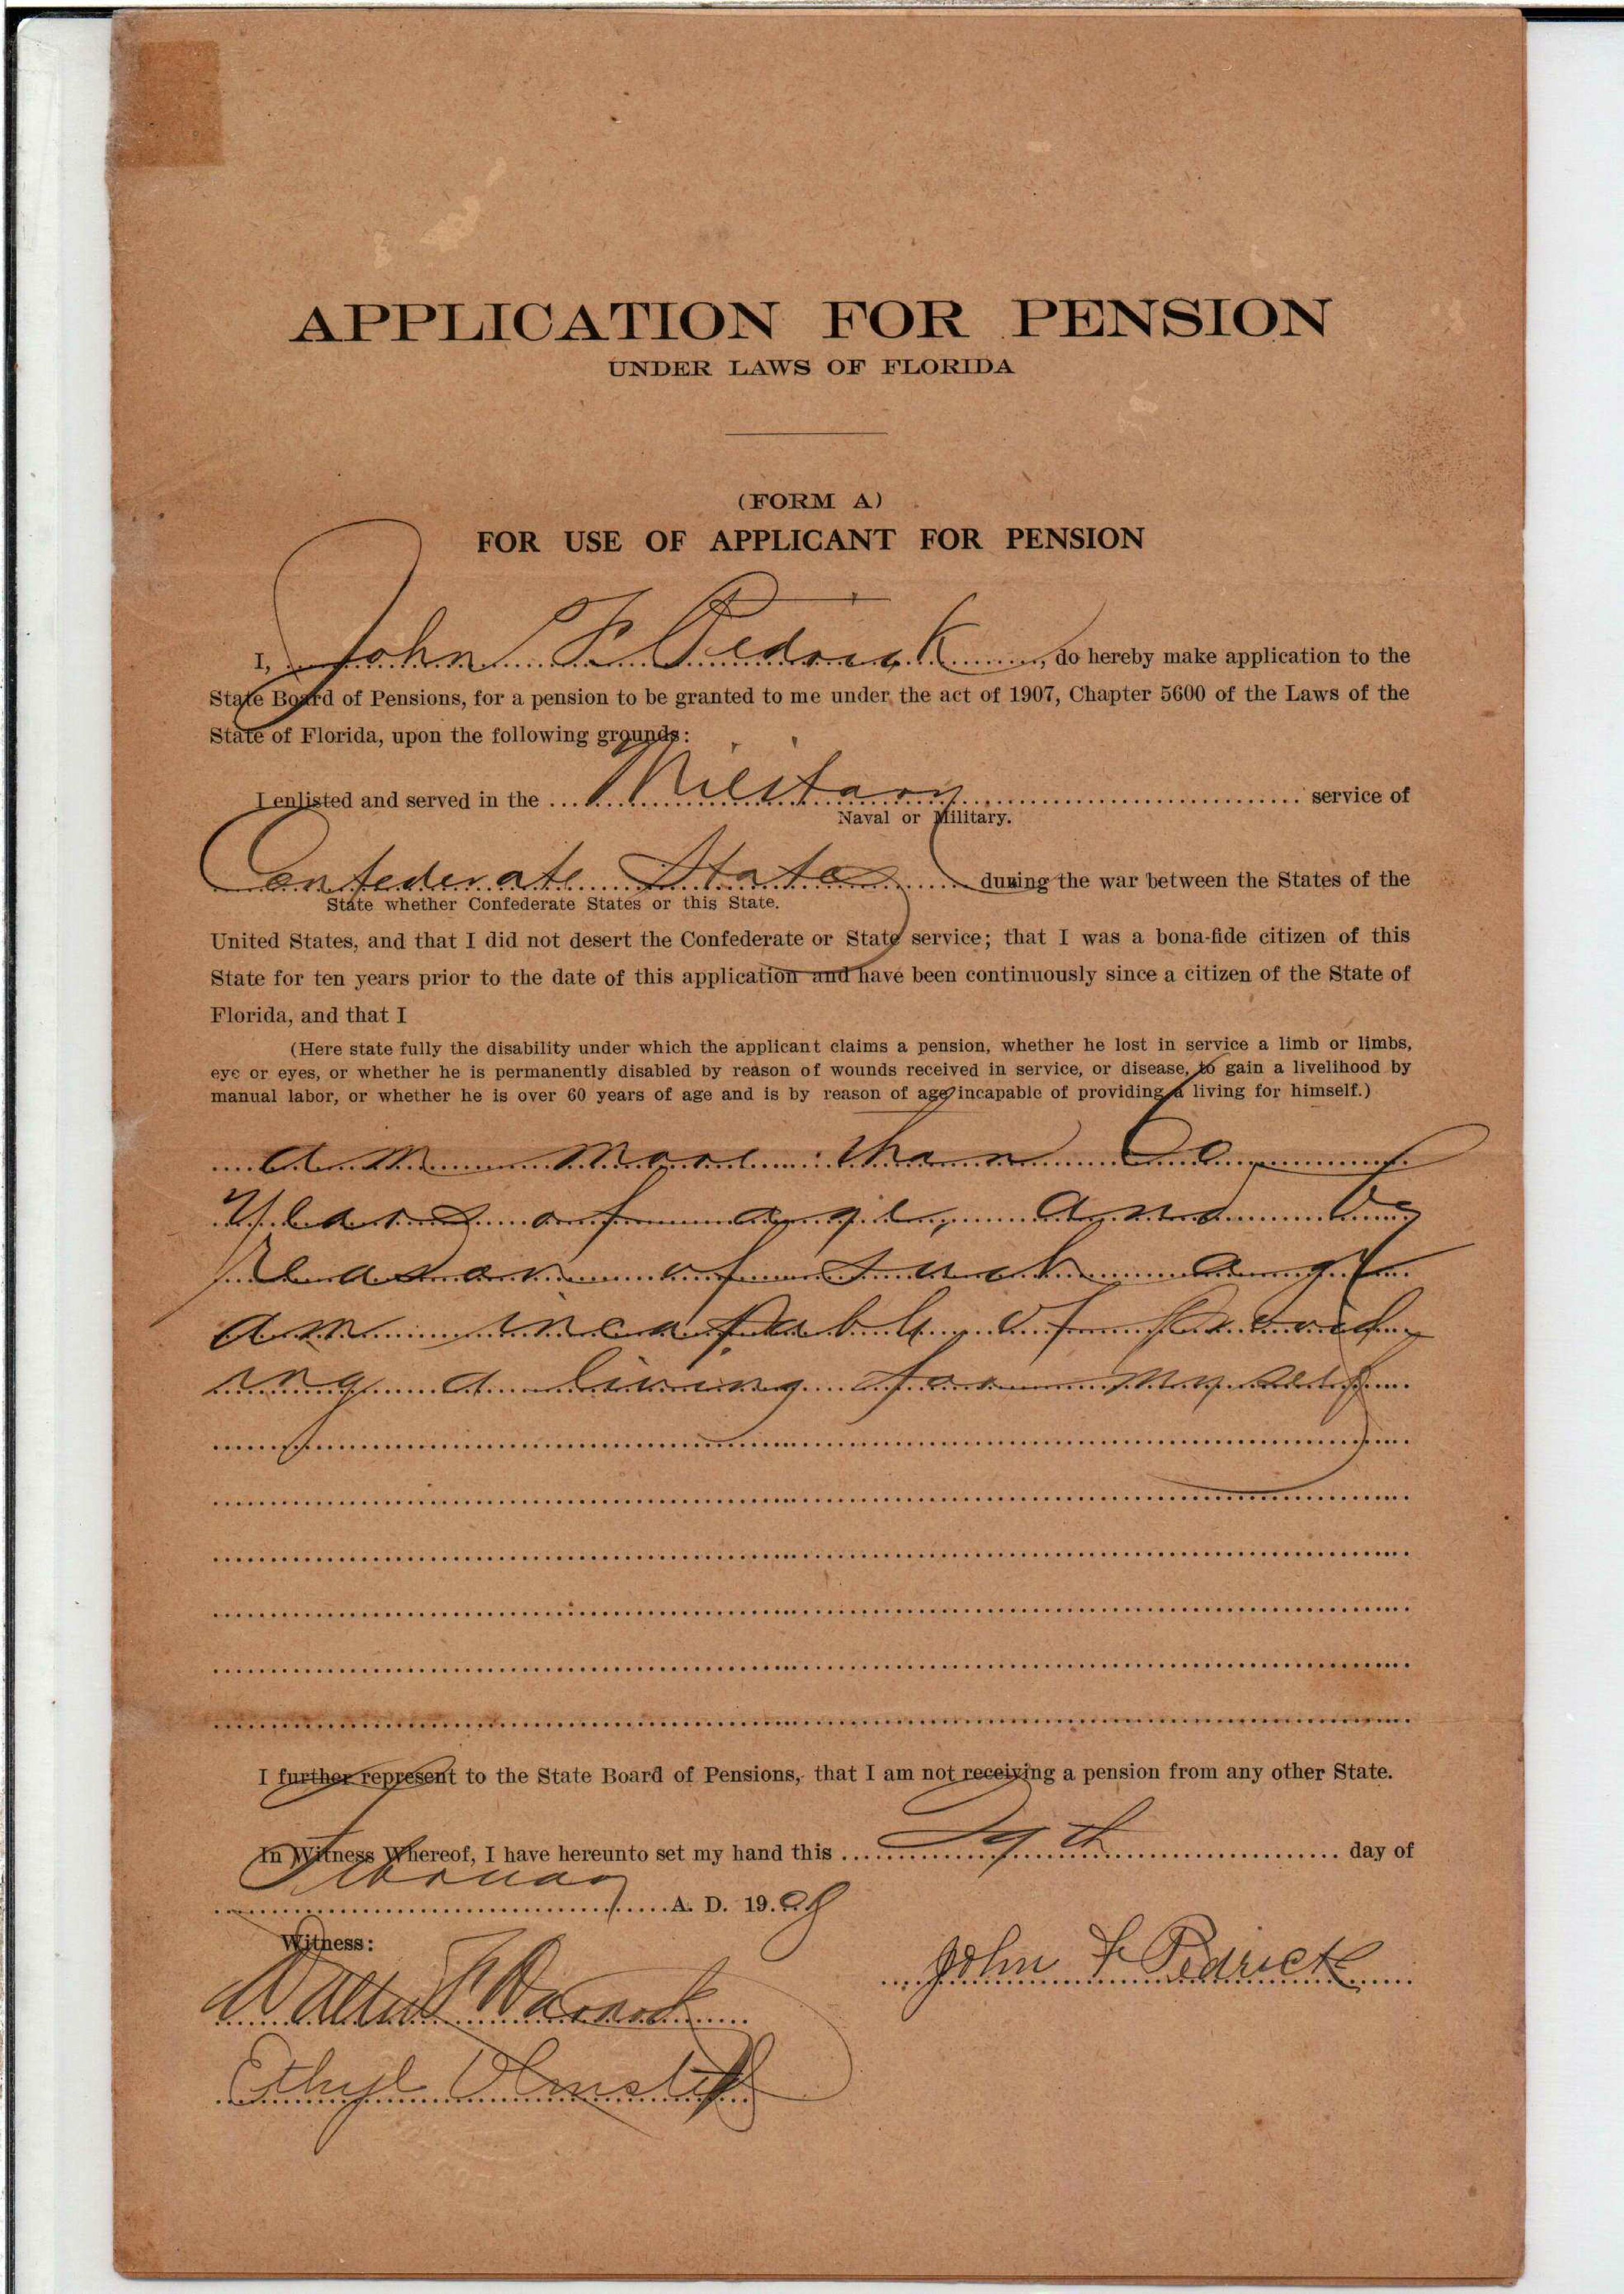 APPLICATION FOR PENSION
UNDER LAWS OF FLORIDA
(FORM A)
FOR USE OF APPLICANT FOR PENSION
I, John F Pedrick, do hereby make application to the
State Board of Pensions, for a pension to be granted to me under the act of 1907, Chapter 5600 of the Laws of the
State of Florida, upon the following grounds:
I enlisted and served in the Military service of
Naval or Military.
Confederate States during the war between the States of the
State whether Confederate States or this State.
United States, and that I did not desert the Confederate or State service; that I was a bona-fide citizen of this
State for ten years prior to the date of this application and have been continuously since a citizen of the State of
Florida, and that I
(Here state fully the disability under which the applicant claims a pension, whether he lost in service a limb or limbs,
eye or eyes, or whether he is permanently disabled by reason of wounds received in service, or disease, to gain a livelihood by
manual labor, or whether he is over 60 years of age and is by reason of age incapable of providing a living for himself.)
am more than 60
years of age, and by
reason of such age
am incapable of provid-
ing a living for myself
I further represent to the State Board of Pensions, that I am not receiving a pension from any other State.
In Witness Whereof, I have hereunto set my hand this 29th day of
February A. D. 1908
Witness:
John F Pedrick
Walter Warnock
Ethyl